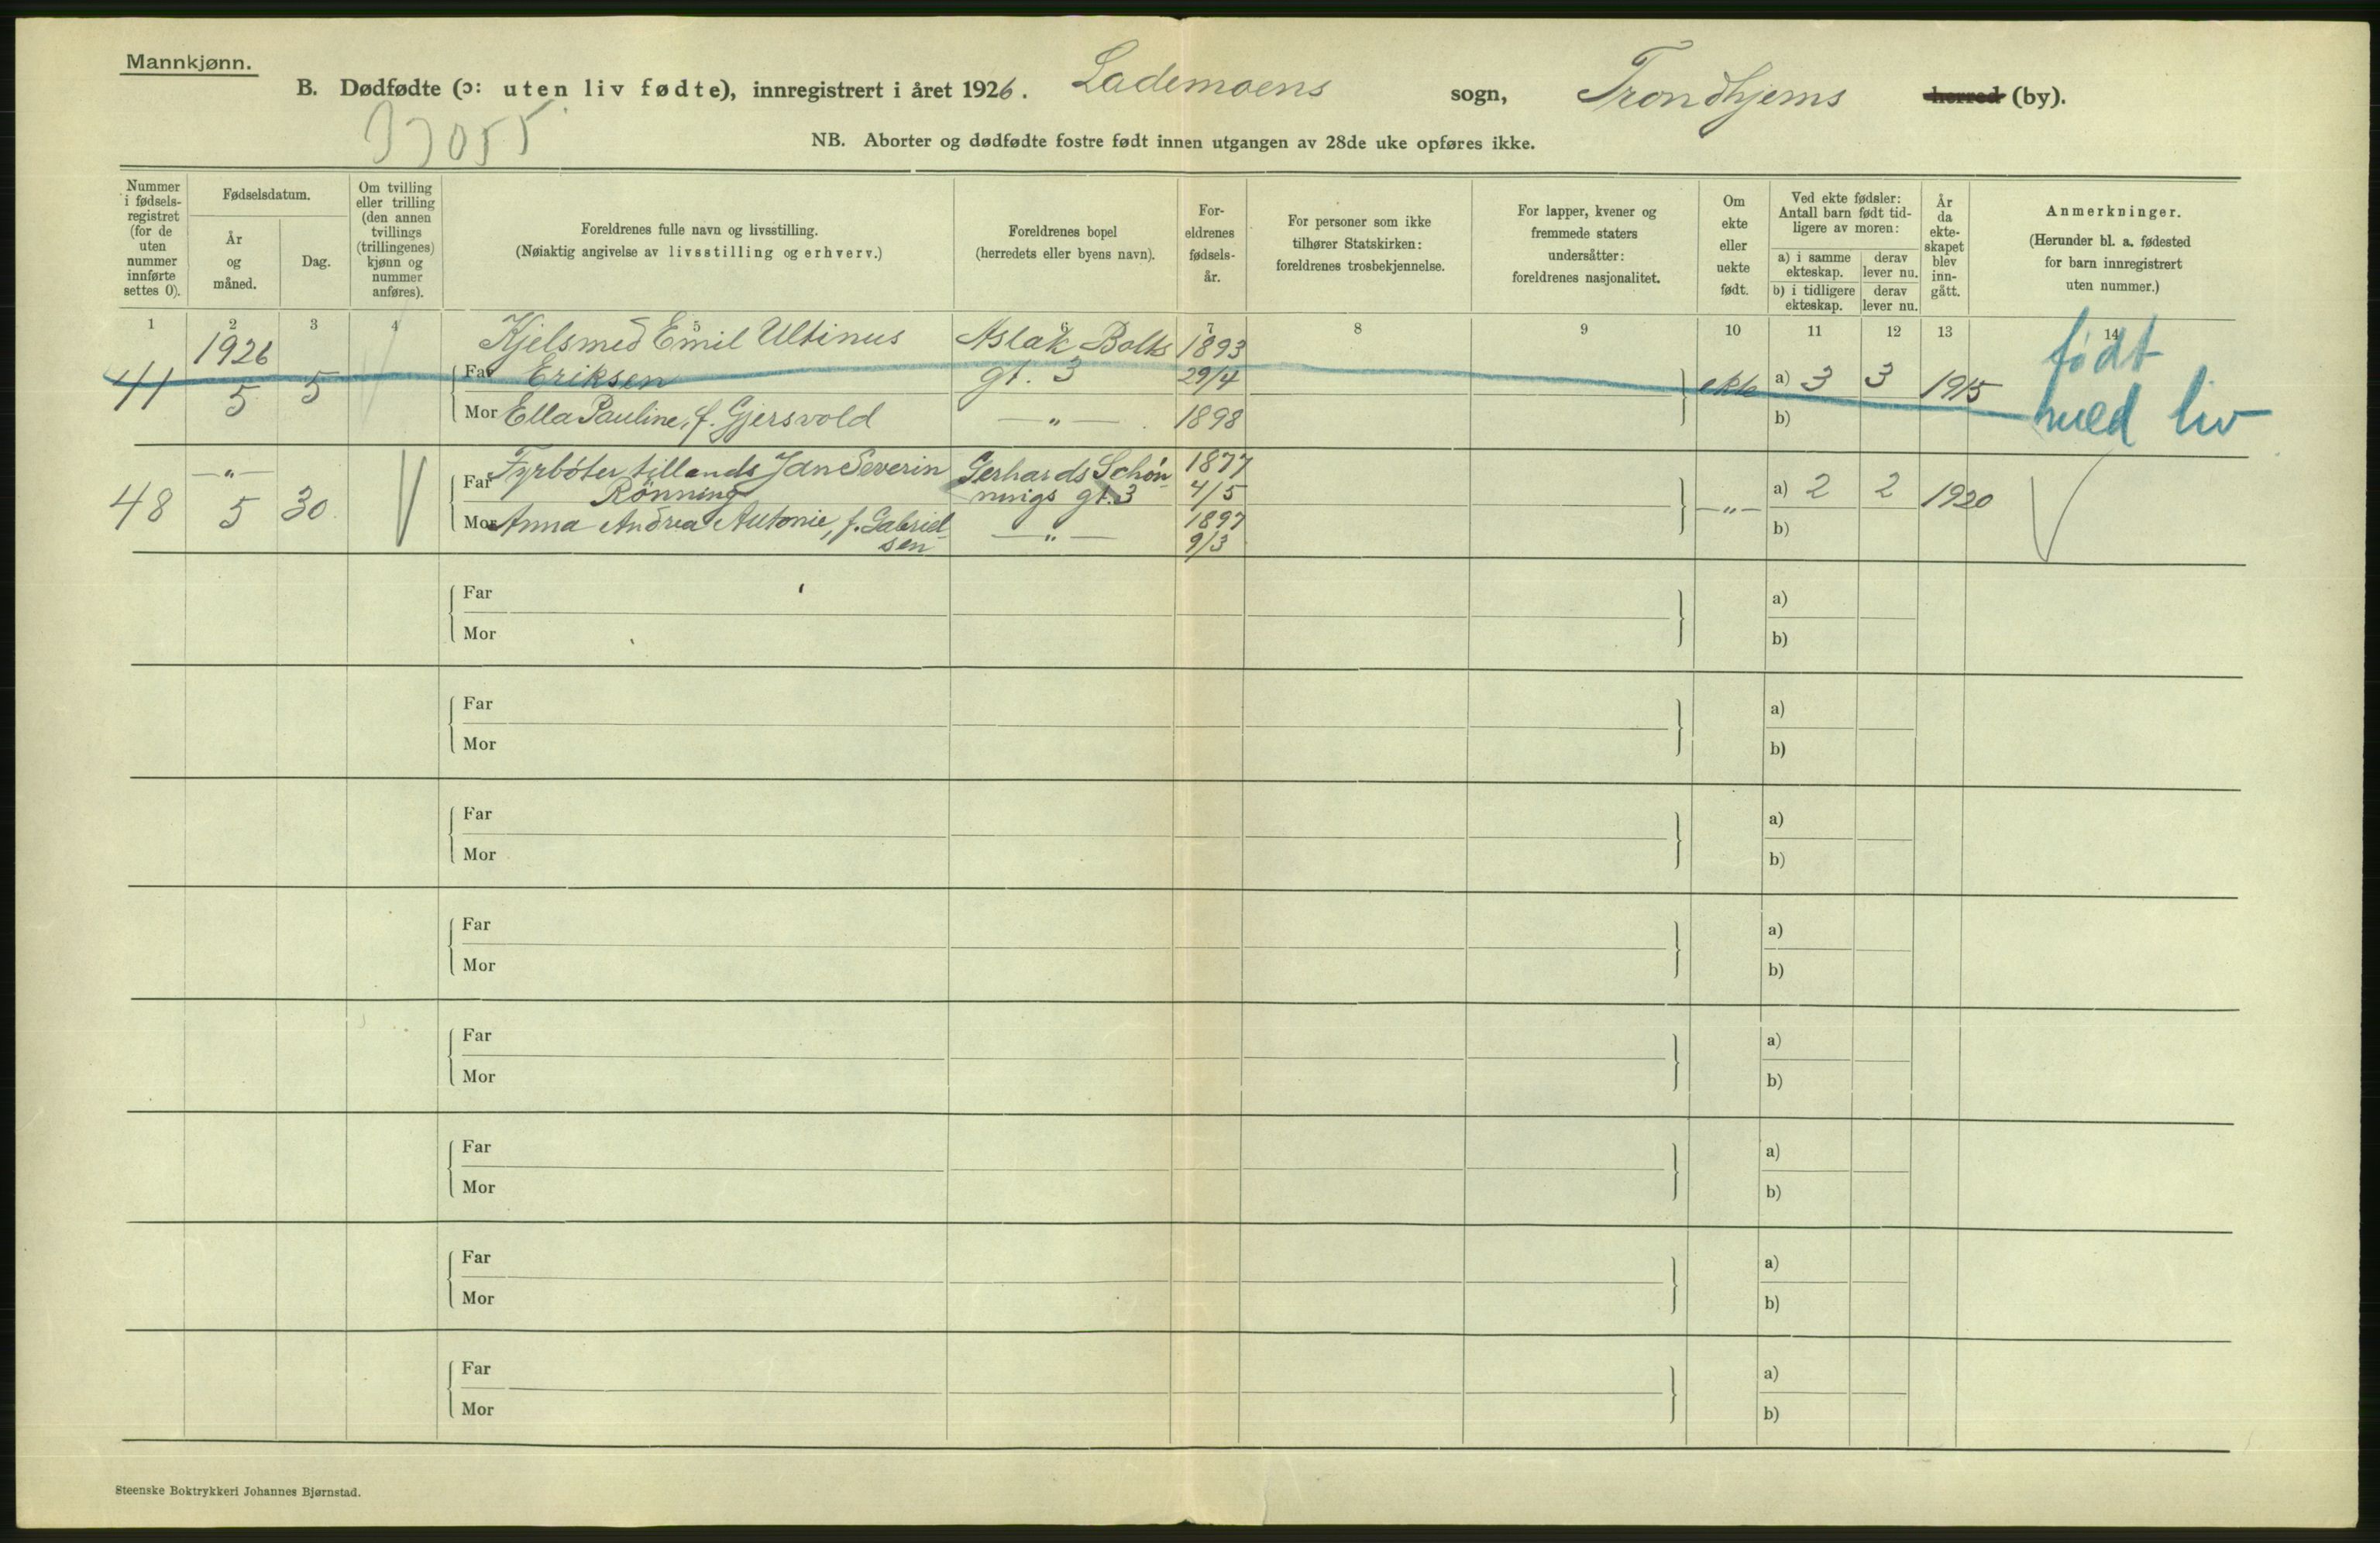 Mannkjønn.
B. Dødfødte (ɔ: uten liv fødte), innregistrert i året 1926. Lademoens sogn, Trondhjems herred (by).
NB. Aborter og dødfødte fostre født innen utgangen av 28de uke opføres ikke.
Nummer i fødsels-registret (for de uten nummer innførte settes 0).
Fødselsdatum.
År og måned.
Dag.
Om tvilling eller trilling (den annen tvillings (trillingenes) kjønn og nummer anføres).
Foreldrenes fulle navn og livsstilling.
(Nøiaktig angivelse av livsstilling og erhverv.)
Foreldrenes bopel
(herredets eller byens navn).
For-eldrenes fødsels-år.
For personer som ikke tilhører Statskirken: foreldrenes trosbekjennelse.
For lapper, kvener og fremmede staters undersåtter: foreldrenes nasjonalitet.
Om ekte eller uekte født.
Ved ekte fødsler: Antall barn født tid-ligere av moren:
a) i samme ekteskap.
derav lever nu.
b) i tidligere ekteskap.
derav lever nu.
År da ekte-skapet blev inn-gått.
Anmerkninger.
(Herunder bl. a. fødested for barn innregistrert uten nummer.)
1 2 3 4 5 6 7 8 9 10 11 12 13 14
1926 Kjelsmed Emil Ultinus Aslak Bolts 1893 født
41 5 5 Far Eriksen gt. 3 29/4 ekte a) 3 3 1915
Mor Ella Pauline, f. Gjersvold —„— 1898 b) med liv
—„— Fyrbøter tillands Jan Severin Gerhards Schøn- 1877
48 5 30 Far Rönning nings gt. 3 4/5 —„— a) 2 2 1920
Mor Anna Andrea Antonie, f. Gabriel- —„— 1897 b)
sen 9/3
Far a)
Mor b)
Far a)
Mor b)
Far a)
Mor b)
Far a)
Mor b)
Far a)
Mor b)
Far a)
Mor b)
Far a)
Mor b)
Far a)
Mor b)
Steenske Boktrykkeri Johannes Bjørnstad.